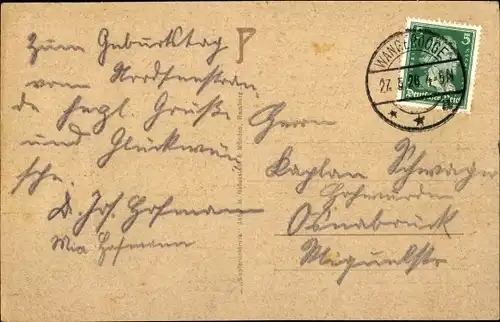 Zum Geburtstag
vom Nordseestran
de herzl. Grüße
und Glückwün
sche.
D. Joh. Hofmann
Mia Hofmann
WANGEROOGE
27. 5. 26. 4-5N
5
Deutsches Reich
Herrn
Kaplan Schwager
Osnabrück